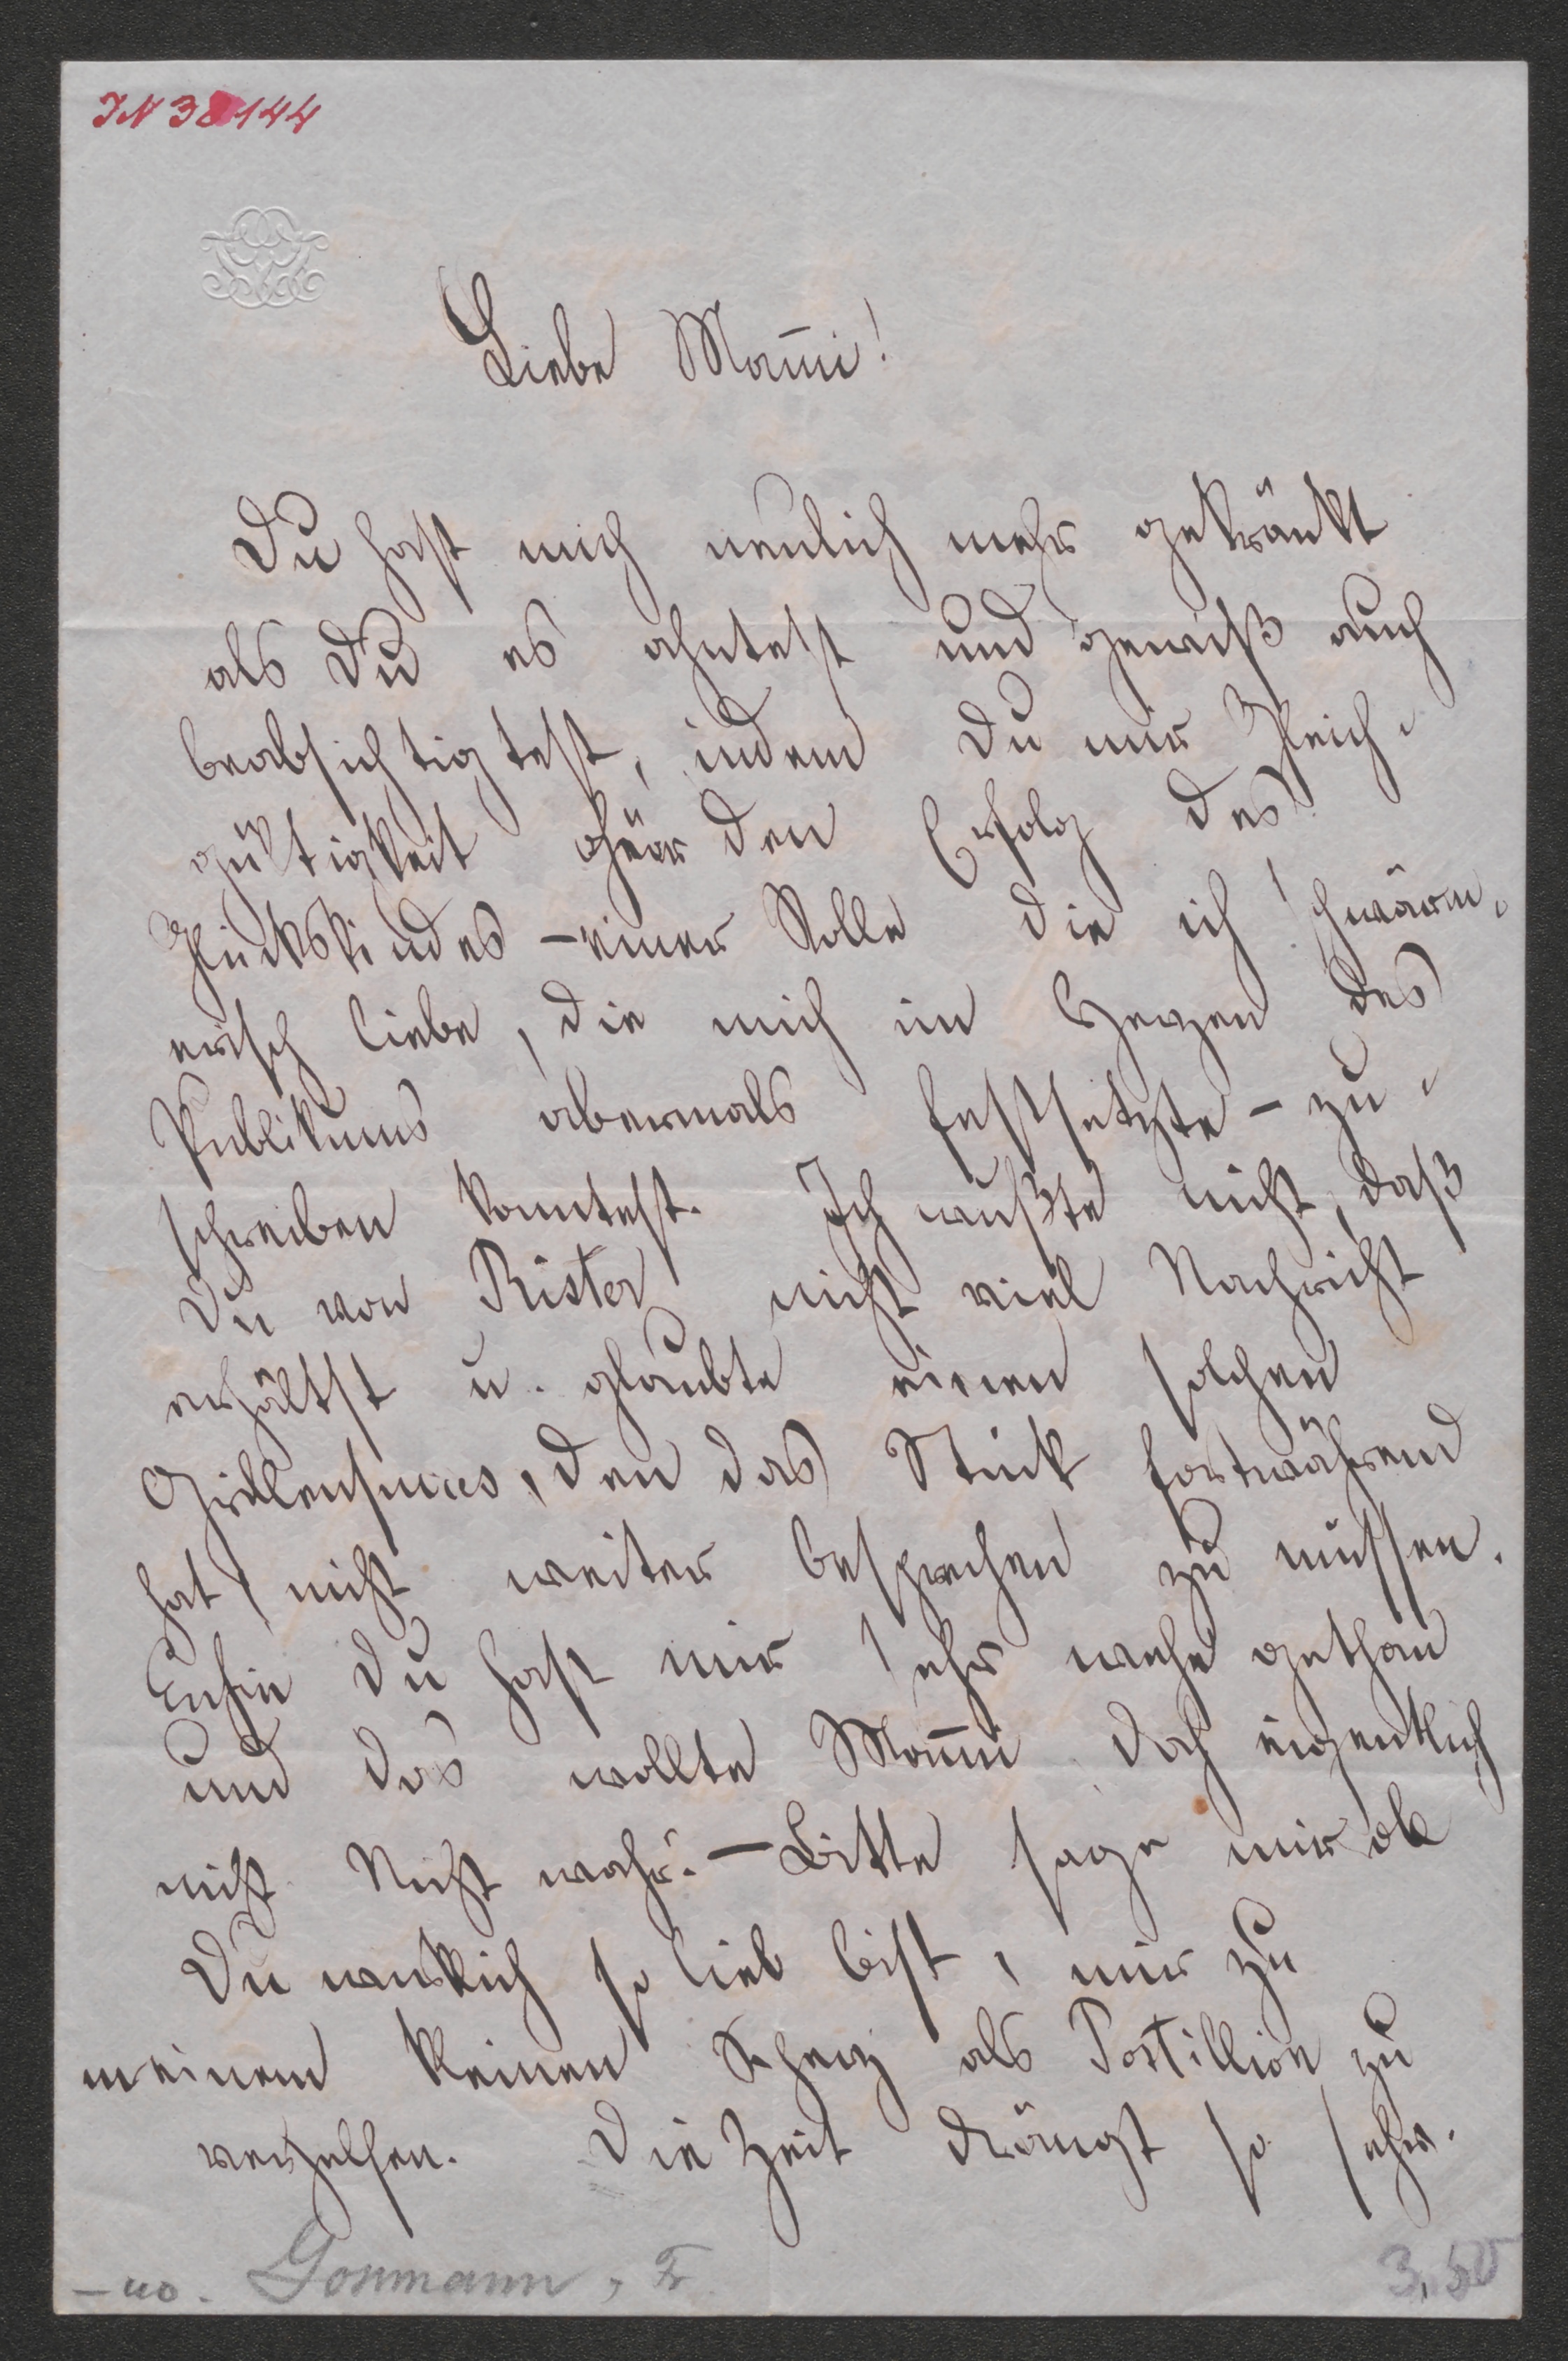 IN 38144
Liebe Mam̄i!
Du hast mich neulich mehr gekränkt
als Du es ahntest und gewiß auch
beabsichtigtest, indem Du mir Gleich-
gültigkeit über den Erfolg des
Glückskindes - einer Rolle die ich schwärm-
erisch liebe, die mich im Herzen des
Publikums abermals festsetzte - zu-
schreiben konntest. Ich wußte nicht, daß
Du von Rister nicht viel Nachricht
erhältst u. glaubte einen solchen
Grillensucces, den das Stück fortwährend
hat, nicht weiter besprechen zu müssen.
Enfin Du hast mir sehr wehe gethan
und das wollte Mam̄i doch eigentlich
nicht. Nicht wahr? - Bitte sage mir ob
Du wirklich so lieb bist, mir zu
meinem kleinen Scherz als Postillion zu
verhelfen. Die Zeit drängt so sehr.
Gossmann, Fr. 3,50